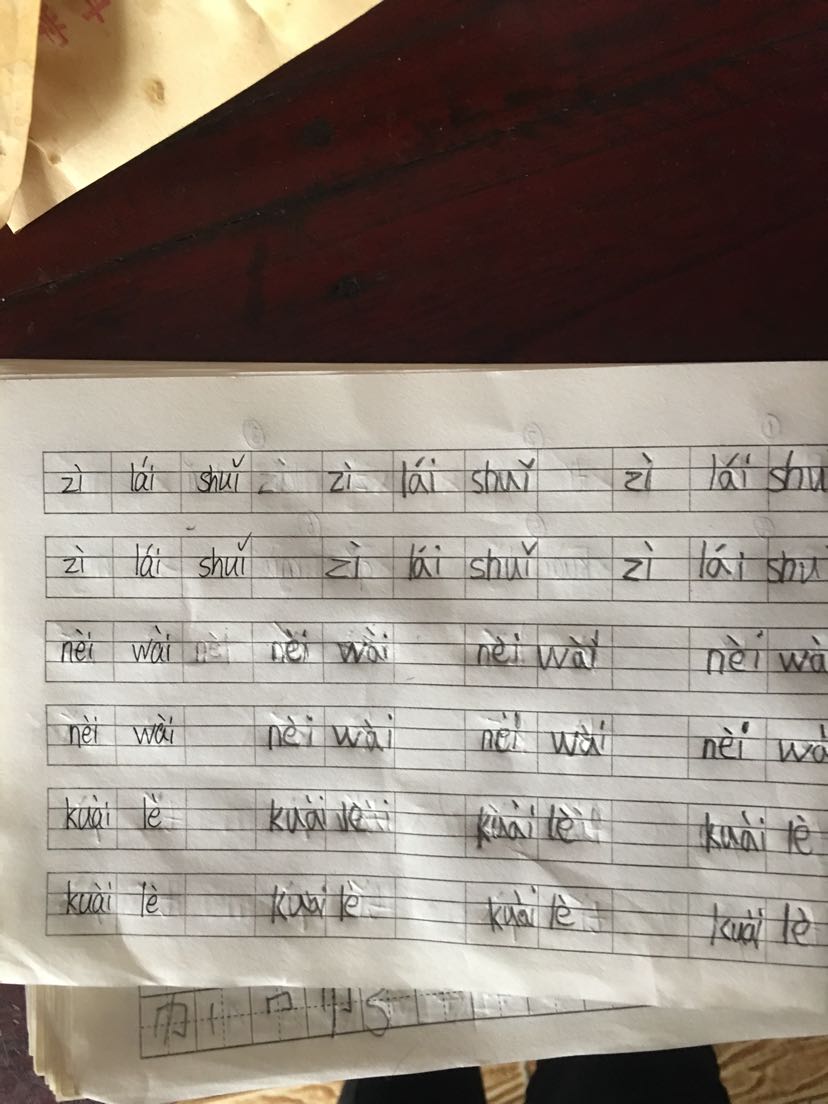 zì lái shuǐ zì lái shuǐ zì lái shu
zì lái shuǐ zì lái shuǐ zì lái shu
nèi wài nèi wài nèi wài nèi wà
nèi wài nèi wài nèi wài nèi wà
kuài lè kuài lè kuài lè kuài lè
kuài lè kuài lè kuài lè kuài lè